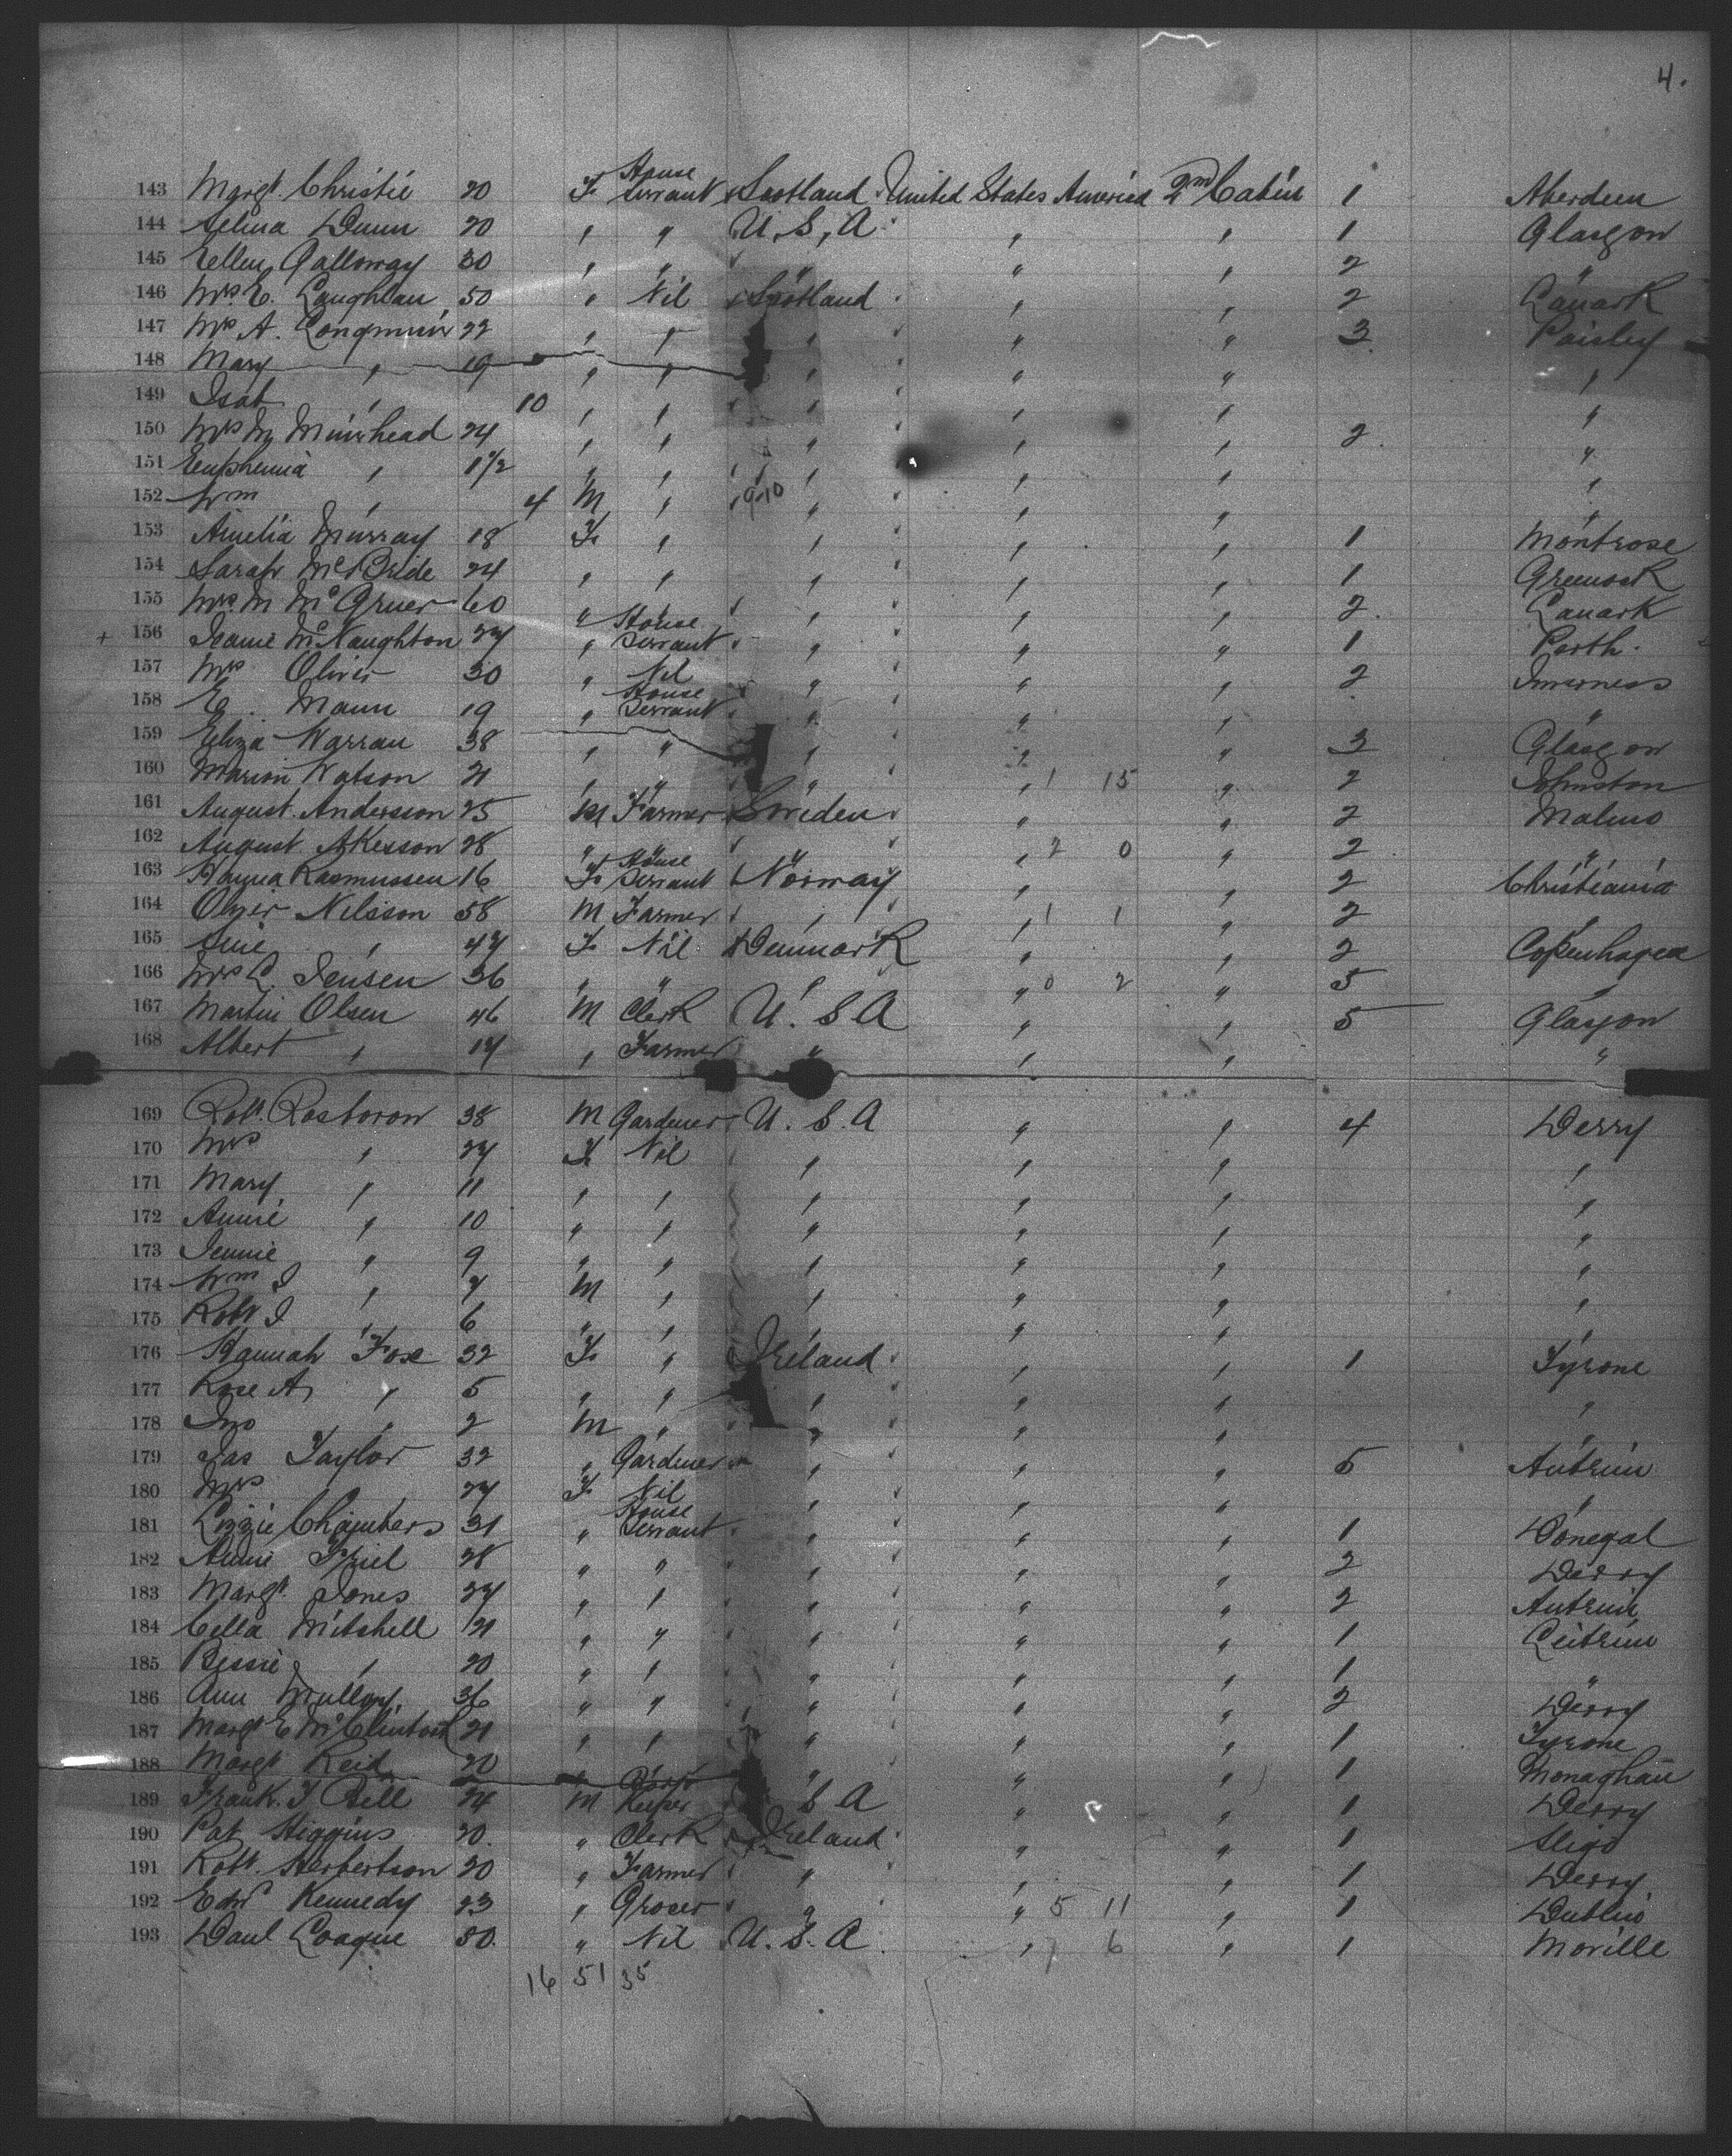 4.
143 Margt. Christie 20 F House Servant Scotland United States America 2nd Cabin 1 Aberdeen
144 Selina Dunn 20 " " U.S,A " " 1 Glasgow
145 Ellen Galloway 30 " " " " " 2 "
146 Mrs E. Laughlan 50 " Nil Scotland " " 2 Lanark
147 Mrs A. Longmuir 22 " " " " " 3 Paisley
148 Mary " 19 " " " " " "
149 Isab " 10 " " " " " "
150 Mrs M Muirhead 24 " " " " " 2 "
151 Euphemia " 1 1/2 " " " " " "
152 Wm " 4 M " 9-10 " " " "
153 Amelia Murray 18 F " " " " 1 Montrose
154 Sarah McBride 24 " " " " " 1 Greenock
155 Mrs M McGruer 60 " " " " " 2 Lanark
+ 156 Jeanie McNaughton 27 " House Servant " " " 1 Perth.
157 Mrs Oliver 30 " Nil " " " 2 Inverness
158 E. Mann 19 " House Servant " " " "
159 Eliza Warran 38 " " " " " 3 Glasgow
160 Marion Watson 21 " " " " 1 15 " 2 Johnston
161 August Andersson 25 M Farmer Sweden " " 2 Malmo
162 August Akesson 28 " " " " 2 0 " 2 "
163 Hanna Rasmussen 16 F House Servant Norway " " 2 Christiania
164 Nilsson 58 M Farmer " " 1 1 " 2 "
165 " 47 F Nil Denmark " " 2 Copenhagen
166 Mrs L. Jensen 36 " " " " 0 2 " 5 "
167 Martin Olsen 46 M Clerk U.S A " " 5 Glasgow
168 Albert " 17 " Farmer " " " "
169 Robt. Rosborow 38 M Gardener U.S.A " " 4 Derry
170 Mrs " 27 F Nil " " " "
171 Mary " 11 " " " " " "
172 Annie " 10 " " " " " "
173 Jennie " 9 " " " " " "
174 Wm J " 7 M " " " " "
175 Robt J " 6 " " " " "
176 Hannah Fox 32 F " Ireland " " 1 Tyrone
177 Rose A " 5 " " " " " "
178 Jno " 2 M " " " " "
179 Jas Taylor 32 " Gardener " " " 5 Antrim
180 Mrs 27 F Nil " " " "
181 Lizzie Chambers 31 " House Servant " " " 1 Donegal
182 Annie Friel 28 " " " " " 2 Derry
183 Margt. Jones 27 " " " " " 2 Antrim
184 Cella Mitchell 21 " " " " " 1 Leitrim
185 Bessie " 20 " " " " " 1 "
186 Ann Mullay 36 " " " " " 2 Derry
187 Margt E McClintock 21 " " " " " 1 Tyrone
188 Margt Reid 20 " " " " " 1 Monaghan
189 Frank. J Bell 24 M Keeper S A " " 1 Derry
190 Pat Higgins 20. " Clerk Ireland " " 1 Sligo
191 Robt. Herbertson 20 " Farmer " " " 1 Derry
192 Edw Kennedy 23 " Grocer " " 5 11 " 1 Dublin
193 Danl Coague 50. " Nil U.S.A. " 7 6 " 1 Moville
16 51 35